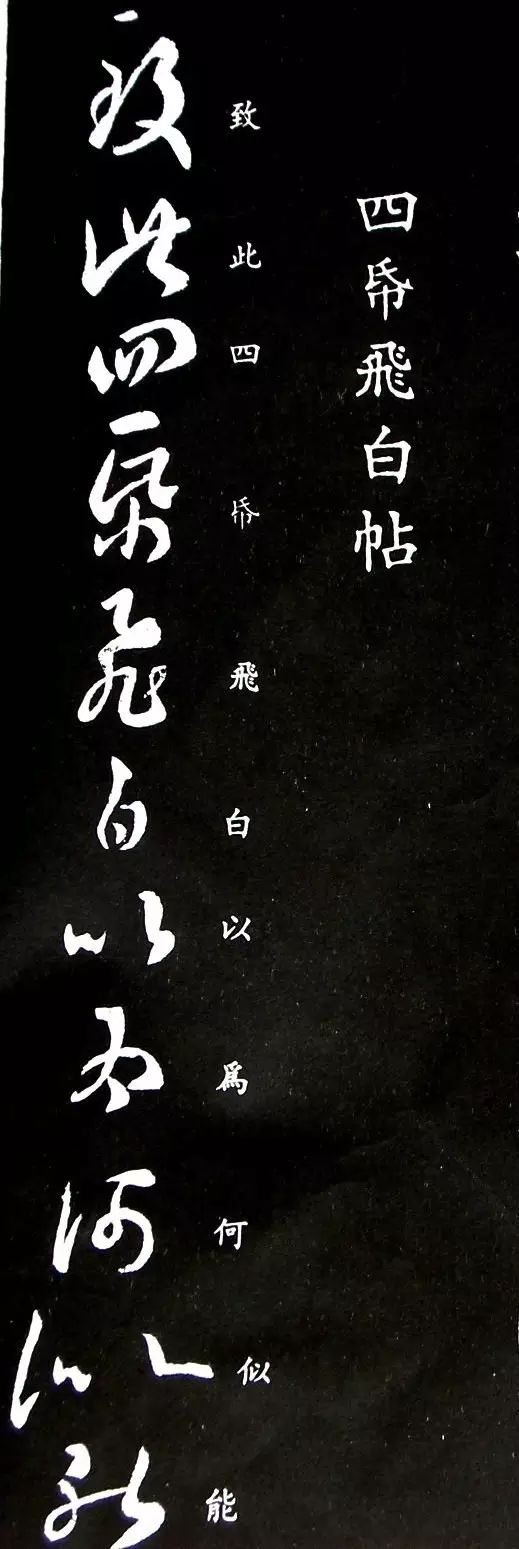 四帋飛白帖
致此四帋飛白以爲何似能
致此四帋飛白以為何似能